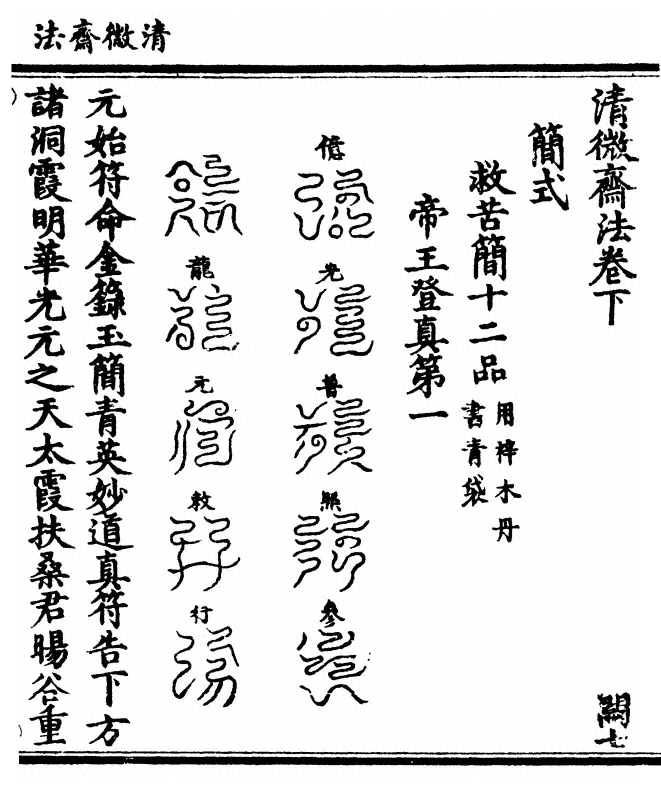 清微齋法
清微齋法卷下
闕七
簡式
救苦簡十二品
用梓木丹
書青袋
帝王登真第一
億
光
普
照
參
龍
元
敕
行
元始符命金籙玉簡青英妙道真符告下方
諸洞霞明華光元之天太霞扶桑君暘谷重